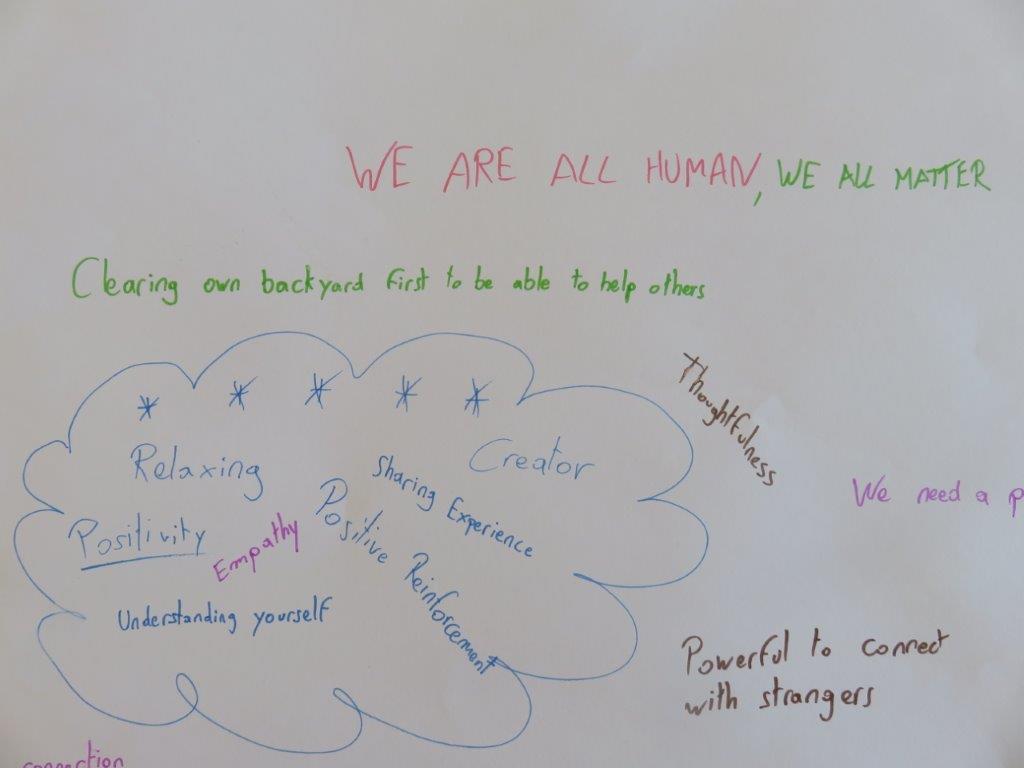 WE ARE ALL HUMAN, WE ALL MATTER
Clearing own backyard first to be able to help others
Thoughtfulness
Relaxing
Creator
Sharing Experience
We need a p
Positivity
Empathy
Positive Reinforcement
Understanding yourself
Powerful to connect
with strangers
connection